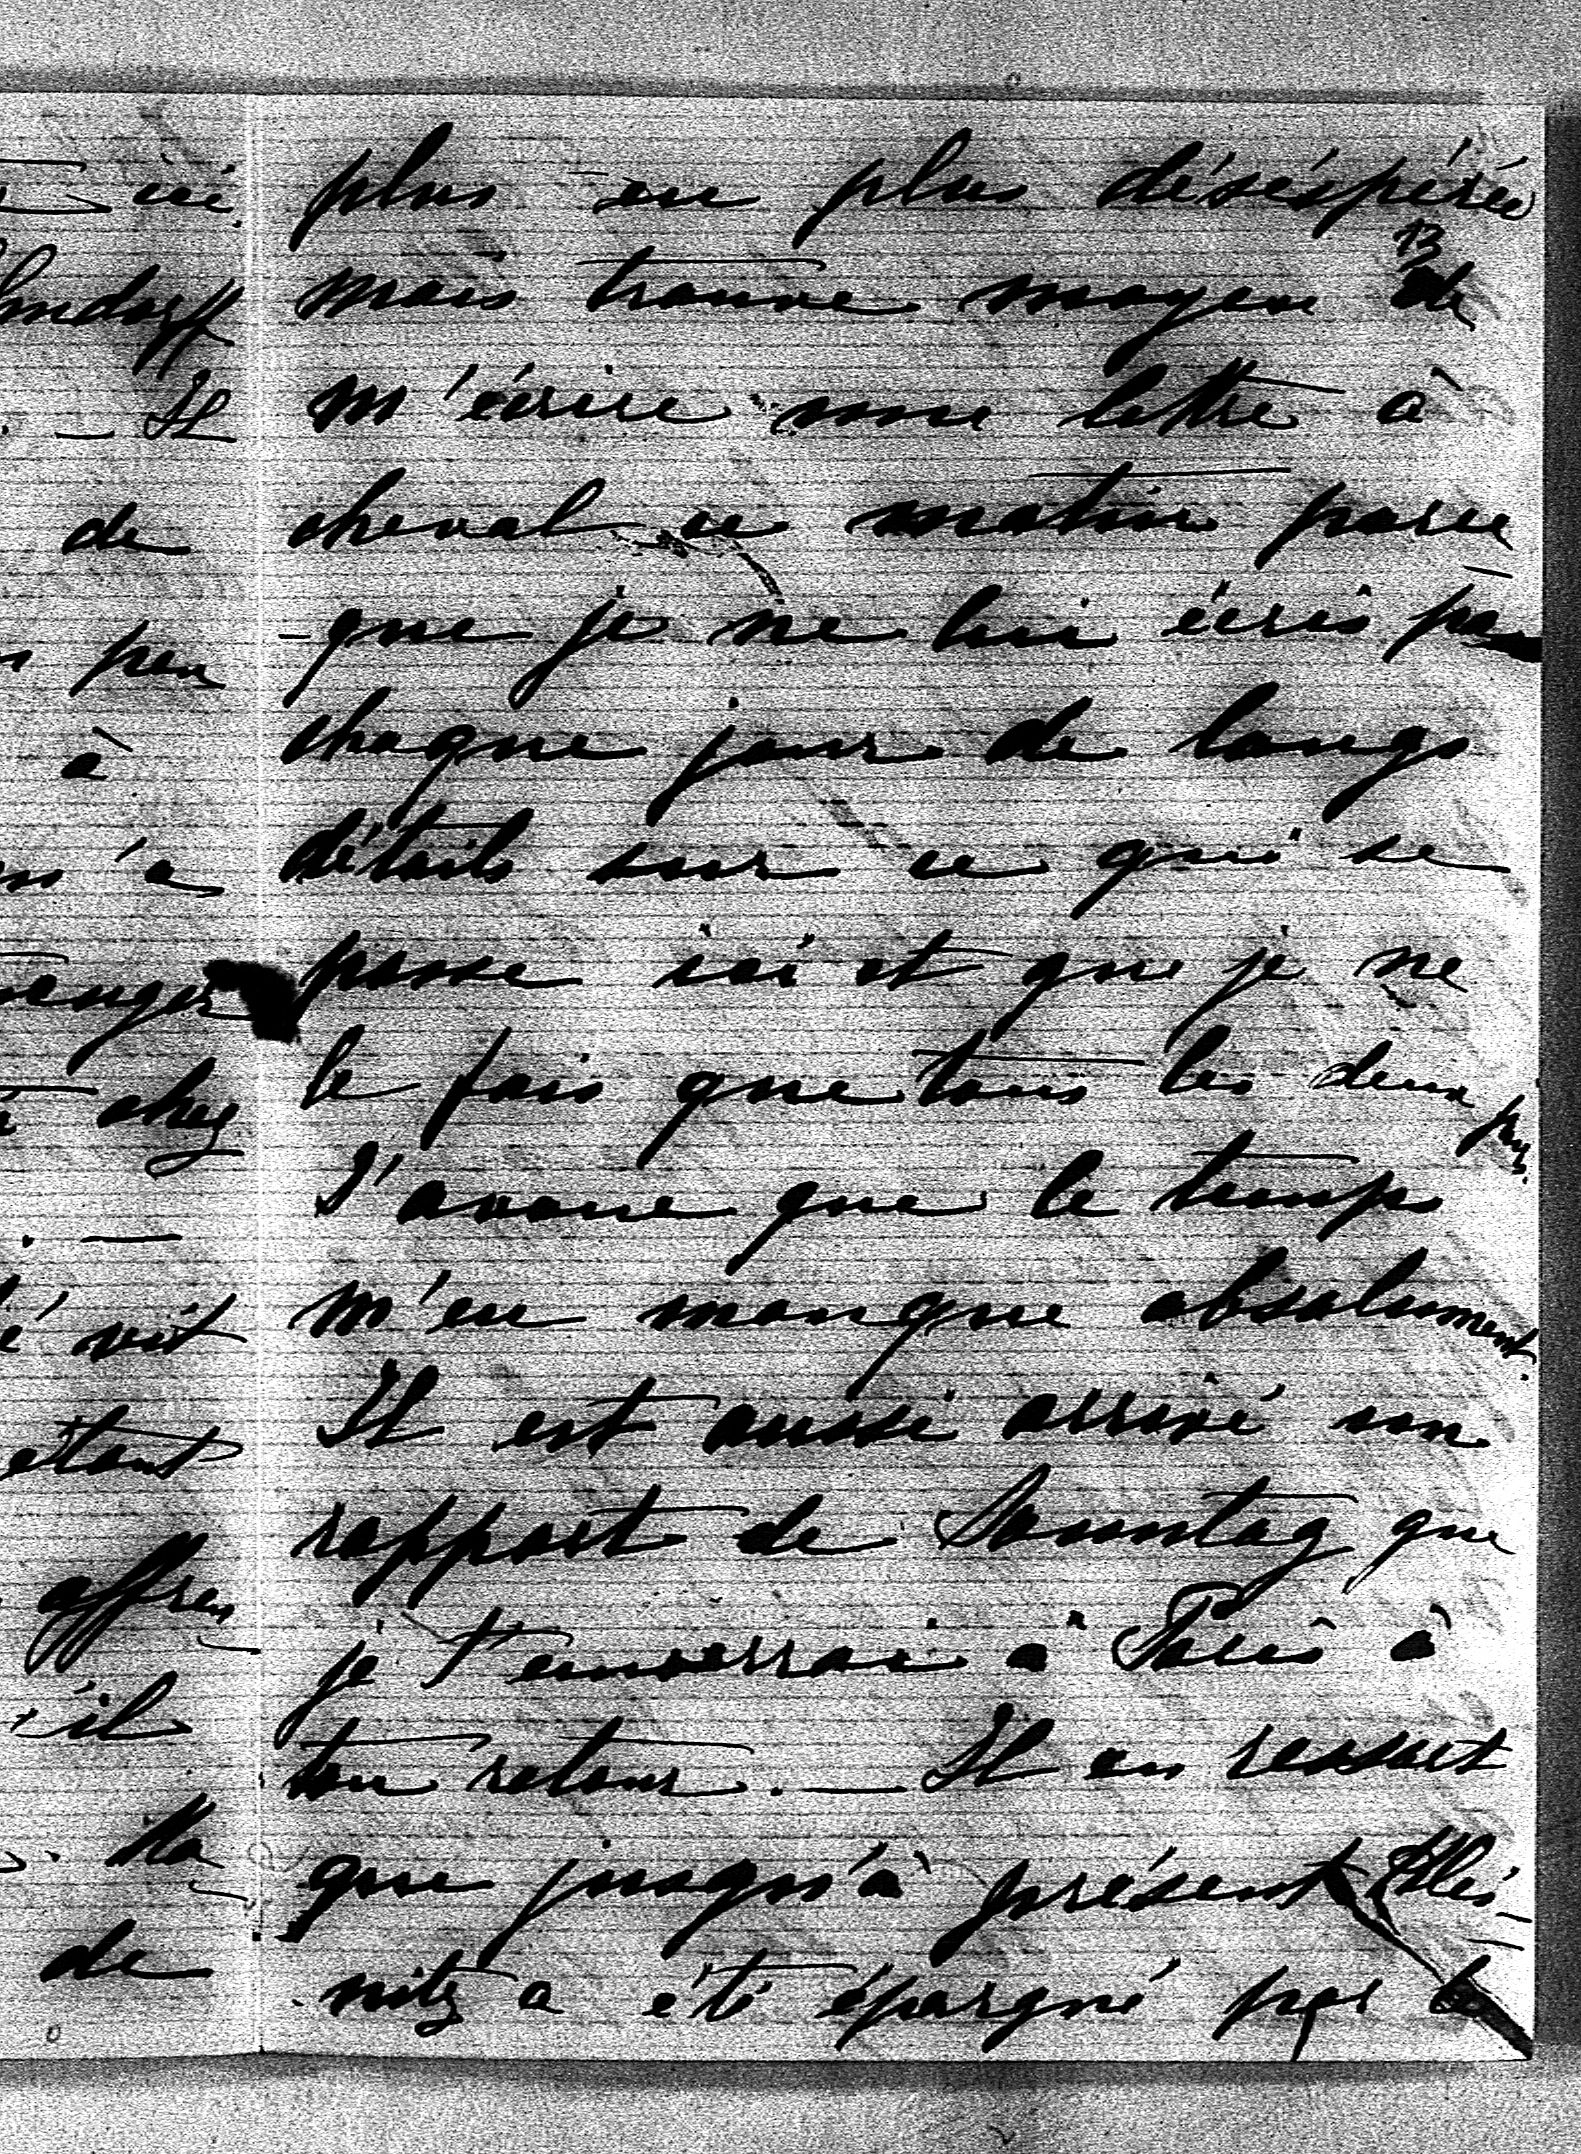 plus en plus désespérée
13
mais trouve moyen de
m'écrire une lettre à
cheval ce matin parce
que je ne lui écris pas
chaque jour de longs
détails sur ce qui se
passe ici et que je ne
le fais que tous les deux jours.
J'avoue que le temps
m'en manque absolument.
Il est aussi arrivé un
rapport de Sonntag que
je t'enverrai à Paris à
ton retour. — Il en ressort
que jusqu'à présent
nitz a été épargné par
ici.
. — Il
de
peu
à
chez
. —
vit
étant
affreu
il
de